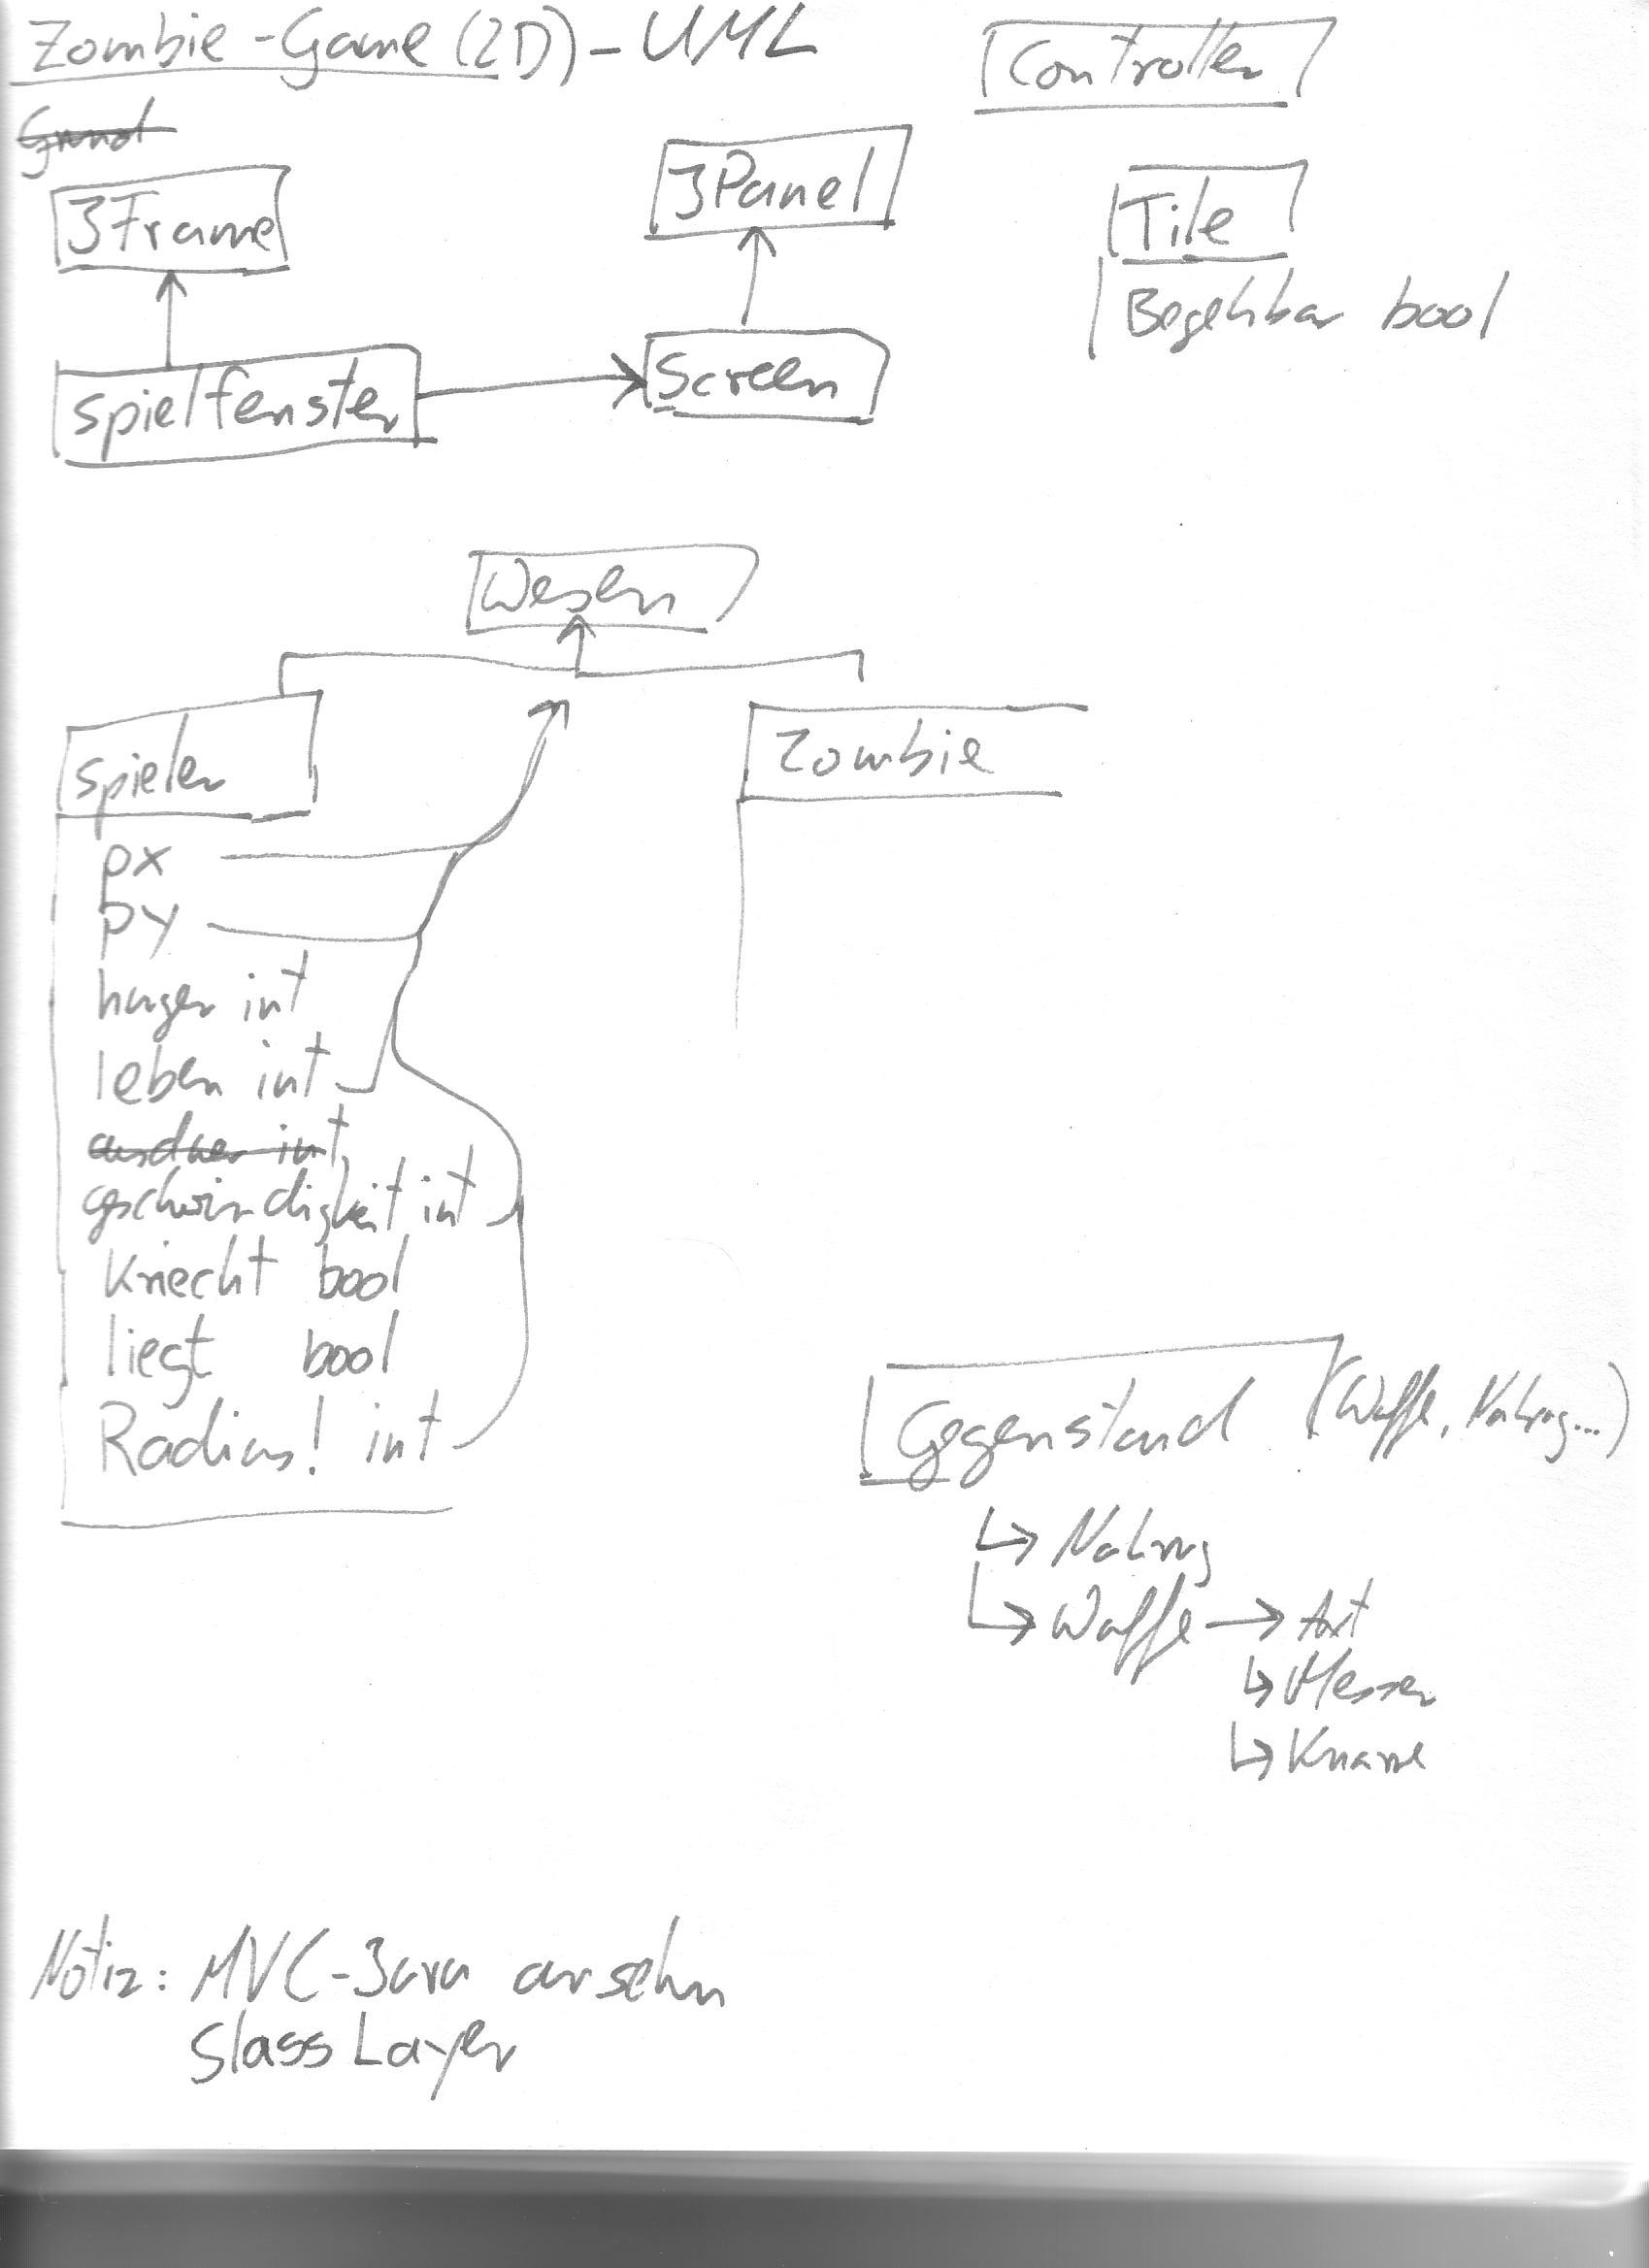 Zombie-Game (2D) - UML
Controller
Grund
JFrame
JPanel
Tile
Begehbar bool
Spielfenster
Screen
Wesen
Spieler
Zombie
px
py
hunger int
leben int
ausdauer int
geschwindigkeit int
Kriecht bool
liegt bool
Radius! int
Gegenstand (Waffe, Nahrung...)
Nahrung
Waffe → Axt
Messer
Knarre
Notiz: MVC-Java ansehn
Glass Layer